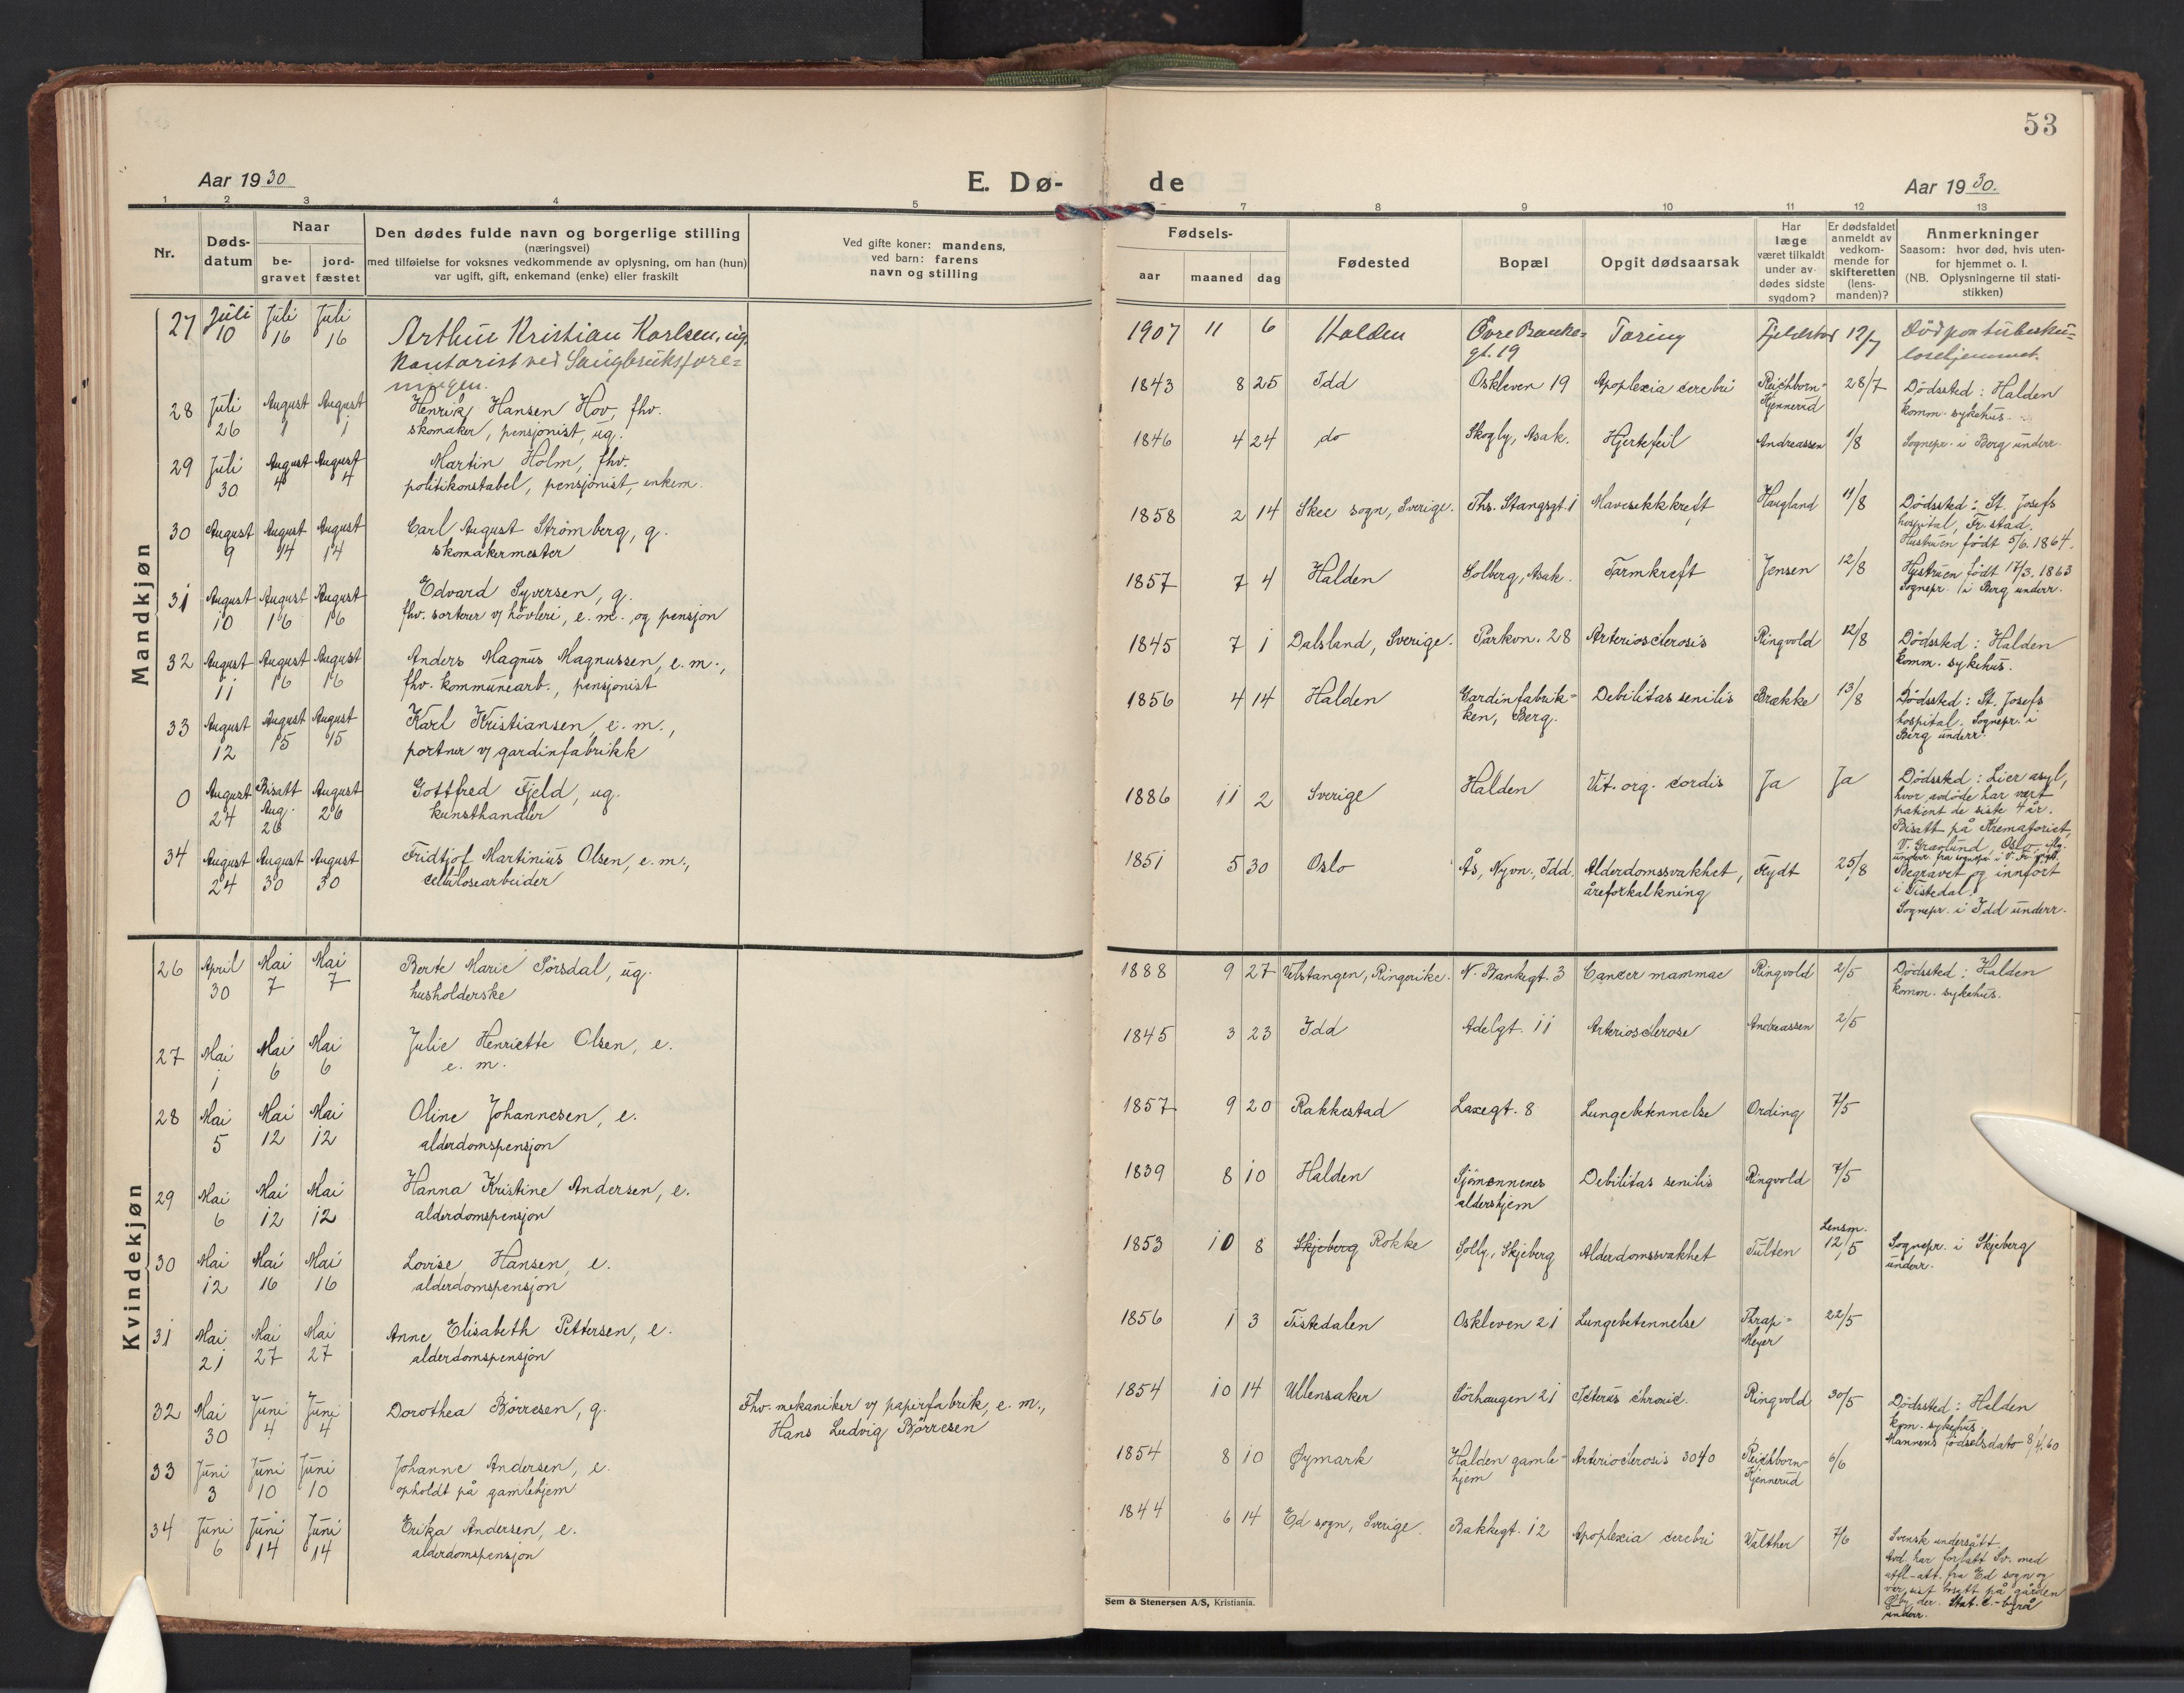 53
Aar 1930
E. Dø-
de
Aar 1930.
1 2 3 4 5 7 8 9 10 11 12 13
Nr.
Døds-
datum
Naar
be-
gravet
jord-
fæstet
Den dødes fulde navn og borgerlige stilling
(næringsvei)
med tilføielse for voksnes vedkommende av oplysning, om han (hun)
var ugift, gift, enkemand (enke) eller fraskilt
Ved gifte koner: mandens,
ved barn: farens
navn og stilling
Fødsels-
aar maaned dag
Fødested
Bopæl
Opgit dødsaarsak
Har
læge
været tilkaldt
under av-
dødes sidste
sygdom?
Er dødsfaldet
anmeldt av
vedkom-
mende for
skifteretten
(lens-
manden)?
Anmerkninger
Saasom: hvor død, hvis uten-
for hjemmet o. l.
(NB. Oplysningerne til stati-
stikken)
Mandkjøn
27 Juli 10 Juli 16 Juli 16
Arthur Kristian Karlsen, ug.
Kontorist ved Saugbruksfore-
ningen.
1907 11 6 Halden
Övre Banke-
gt. 19
Tæring
12/7
Död paa tuberku-
losehjemmet.
28 Juli 26 August 1 August 1
Henrik Hansen Hov, fhv.
skomaker, pensjonist, ug.
1843 8 25 Idd Oskleven 19 Apoplexia cerebri
Reichborn-
Kjennerud
28/7
Dödssted: Halden
komm. sykehus.
29 Juli 30 August 4 August 4
Martin Holm, fhv.
politikonstabel, pensjonist, enkem.
1846 4 24 do Skogly, Asak. Hjertefeil Andreassen 1/8 Sognepr. i Berg underr.
30 August 9 August 14 August 14
Carl August Strömberg, g.
skomakermester
1858 2 14 Skee sogn, Sverige. Ths. Stangsgt. 1 Mavesekkkreft Haugland 11/8
Dödssted: St. Josefs
hospital, Fr.stad.
Hustruen födt 5/6. 1864.
31 August 10 August 16 August 16
Edvard Syversen, g.
fhv. sorterer v/ hövleri, e. m. og pensjon
1857 7 4 Halden Solberg, Asak. Tarmkreft Jensen 12/8
Hustruen födt 17/3. 1863
Sognepr. i Berg underr.
32 August 11 August 16 August 16
Anders Magnus Magnussen, e. m.,
fhv. kommunearb., pensjonist
1845 7 1 Dalsland, Sverige. Parkvn. 28 Arteriosclerosis Ringvold 12/8
Dödssted: Halden
komm. sykehus.
33 August 12 August 15 August 15
Karl Kristiansen, e. m.,
portner v/ gardinfabrikk
1856 4 14 Halden
Gardinfabrik-
ken, Berg.
Debilitas senilis Brække 13/8
Dödssted: St. Josefs
hospital. Sognepr. i
Berg underr.
0 August 24 Bisatt Aug. 26 August 26
Gottfred Fjeld, ug.
kunsthandler
1886 11 2 Sverige Halden Vit. org. cordis Ja Ja
Dödssted: Lier asyl,
hvor avdöde har vært
patient de siste 4 år.
Bisatt på Krematoriet,
V. Gravlund, Oslo,
34 August 24 August 30 August 30
Fridtjof Martinius Olsen, e. m.,
cellulosearbeider
1851 5 30 Oslo Ås, Nyvn., Idd.
Alderdomssvakhet,
åreforkalkning
Flydt 25/8
Begravet og innfört
i Tistedal.
Sognepr. i Idd underr.
Kvindekjøn
26 April 30 Mai 7 Mai 7
Berte Marie Sörsdal, ug.
husholderske
1888 9 27 Ulstangen, Ringerike. N. Bankegt. 3 Cancer mammae Ringvold 2/5
Dödssted: Halden
komm. sykehus.
27 Mai 1 Mai 6 Mai 6
Julie Henriette Olsen, e.
e. m.
1845 3 23 Idd Adelgt. 11 Arteriosclerose Andreassen 2/5
28 Mai 5 Mai 12 Mai 12
Oline Johannesen, e.
alderdomspensjon
1857 9 20 Rakkestad Laxegt. 8 Lungebetennelse Ording 7/5
29 Mai 6 Mai 12 Mai 12
Hanna Kristine Andersen, e.
alderdomspensjon
1839 8 10 Halden
Sjömennenes
aldershjem
Debilitas senilis Ringvold 7/5
30 Mai 12 Mai 16 Mai 16
Lovise Hansen, e.
alderdomspensjon
1853 10 8 Skjeberg Rokke Solly, Skjeberg Alderdomssvakhet Tulten
Lensm.
12/5
Sognepr. i Skjeberg
underr.
31 Mai 21 Mai 27 Mai 27
Anne Elisabeth Pettersen, e.
alderdomspensjon
1856 1 3 Tistedalen Oskleven 21 Lungebetennelse
Thrap-
Meyer
22/5
32 Mai 30 Juni 4 Juni 4
Dorothea Börresen, g.
Fhv. mekaniker v/ papirfabrik, e. m.,
Hans Ludvig Börresen
1854 10 14 Ullensaker Sörhaugen 21 Icterus chronic. Ringvold 30/5
Dödssted: Halden
kom. sykehus.
Mannens födselsdato 8/4. 60
33 Juni 3 Juni 10 Juni 10
Johanne Andersen, e.
opholdt på gamlehjem
1854 8 10 Öymark
Halden gamle-
hjem
Arteriosclerosis
Reichborn-
Kjennerud
6/6
34 Juni 6 Juni 14 Juni 14
Erika Andersen, e.
alderdomspensjon
1844 6 14 Ed sogn, Sverige. Bakkegt. 12 Apoplexia cerebri Walther 7/6
Svensk undersått.
Avd. har forlatt Sv. med
utfl.-att. fra Ed sogn og
var sist bosatt på gården
der. Stat. c.-byrå
underr.
Sem & Stenersen A/S, Kristiania.